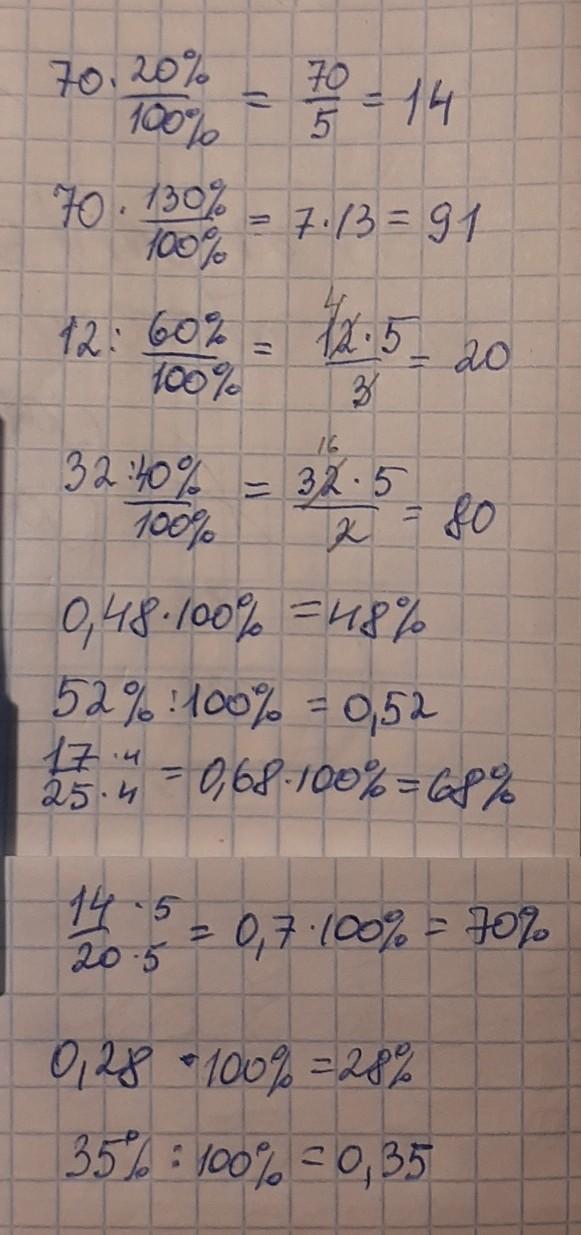 70 · 20%/100% = 70/5 = 14
70 · 130%/100% = 7 · 13 = 91
12 : 60%/100% = 4 12 · 5/3 = 20
32 : 40%/100% = 16 32 · 5/2 = 80
0,48 · 100% = 48%
52% : 100% = 0,52
17 · 4/25 · 4 = 0,68 · 100% = 68%
14 · 5/20 · 5 = 0,7 · 100% = 70%
0,28 · 100% = 28%
35% : 100% = 0,35